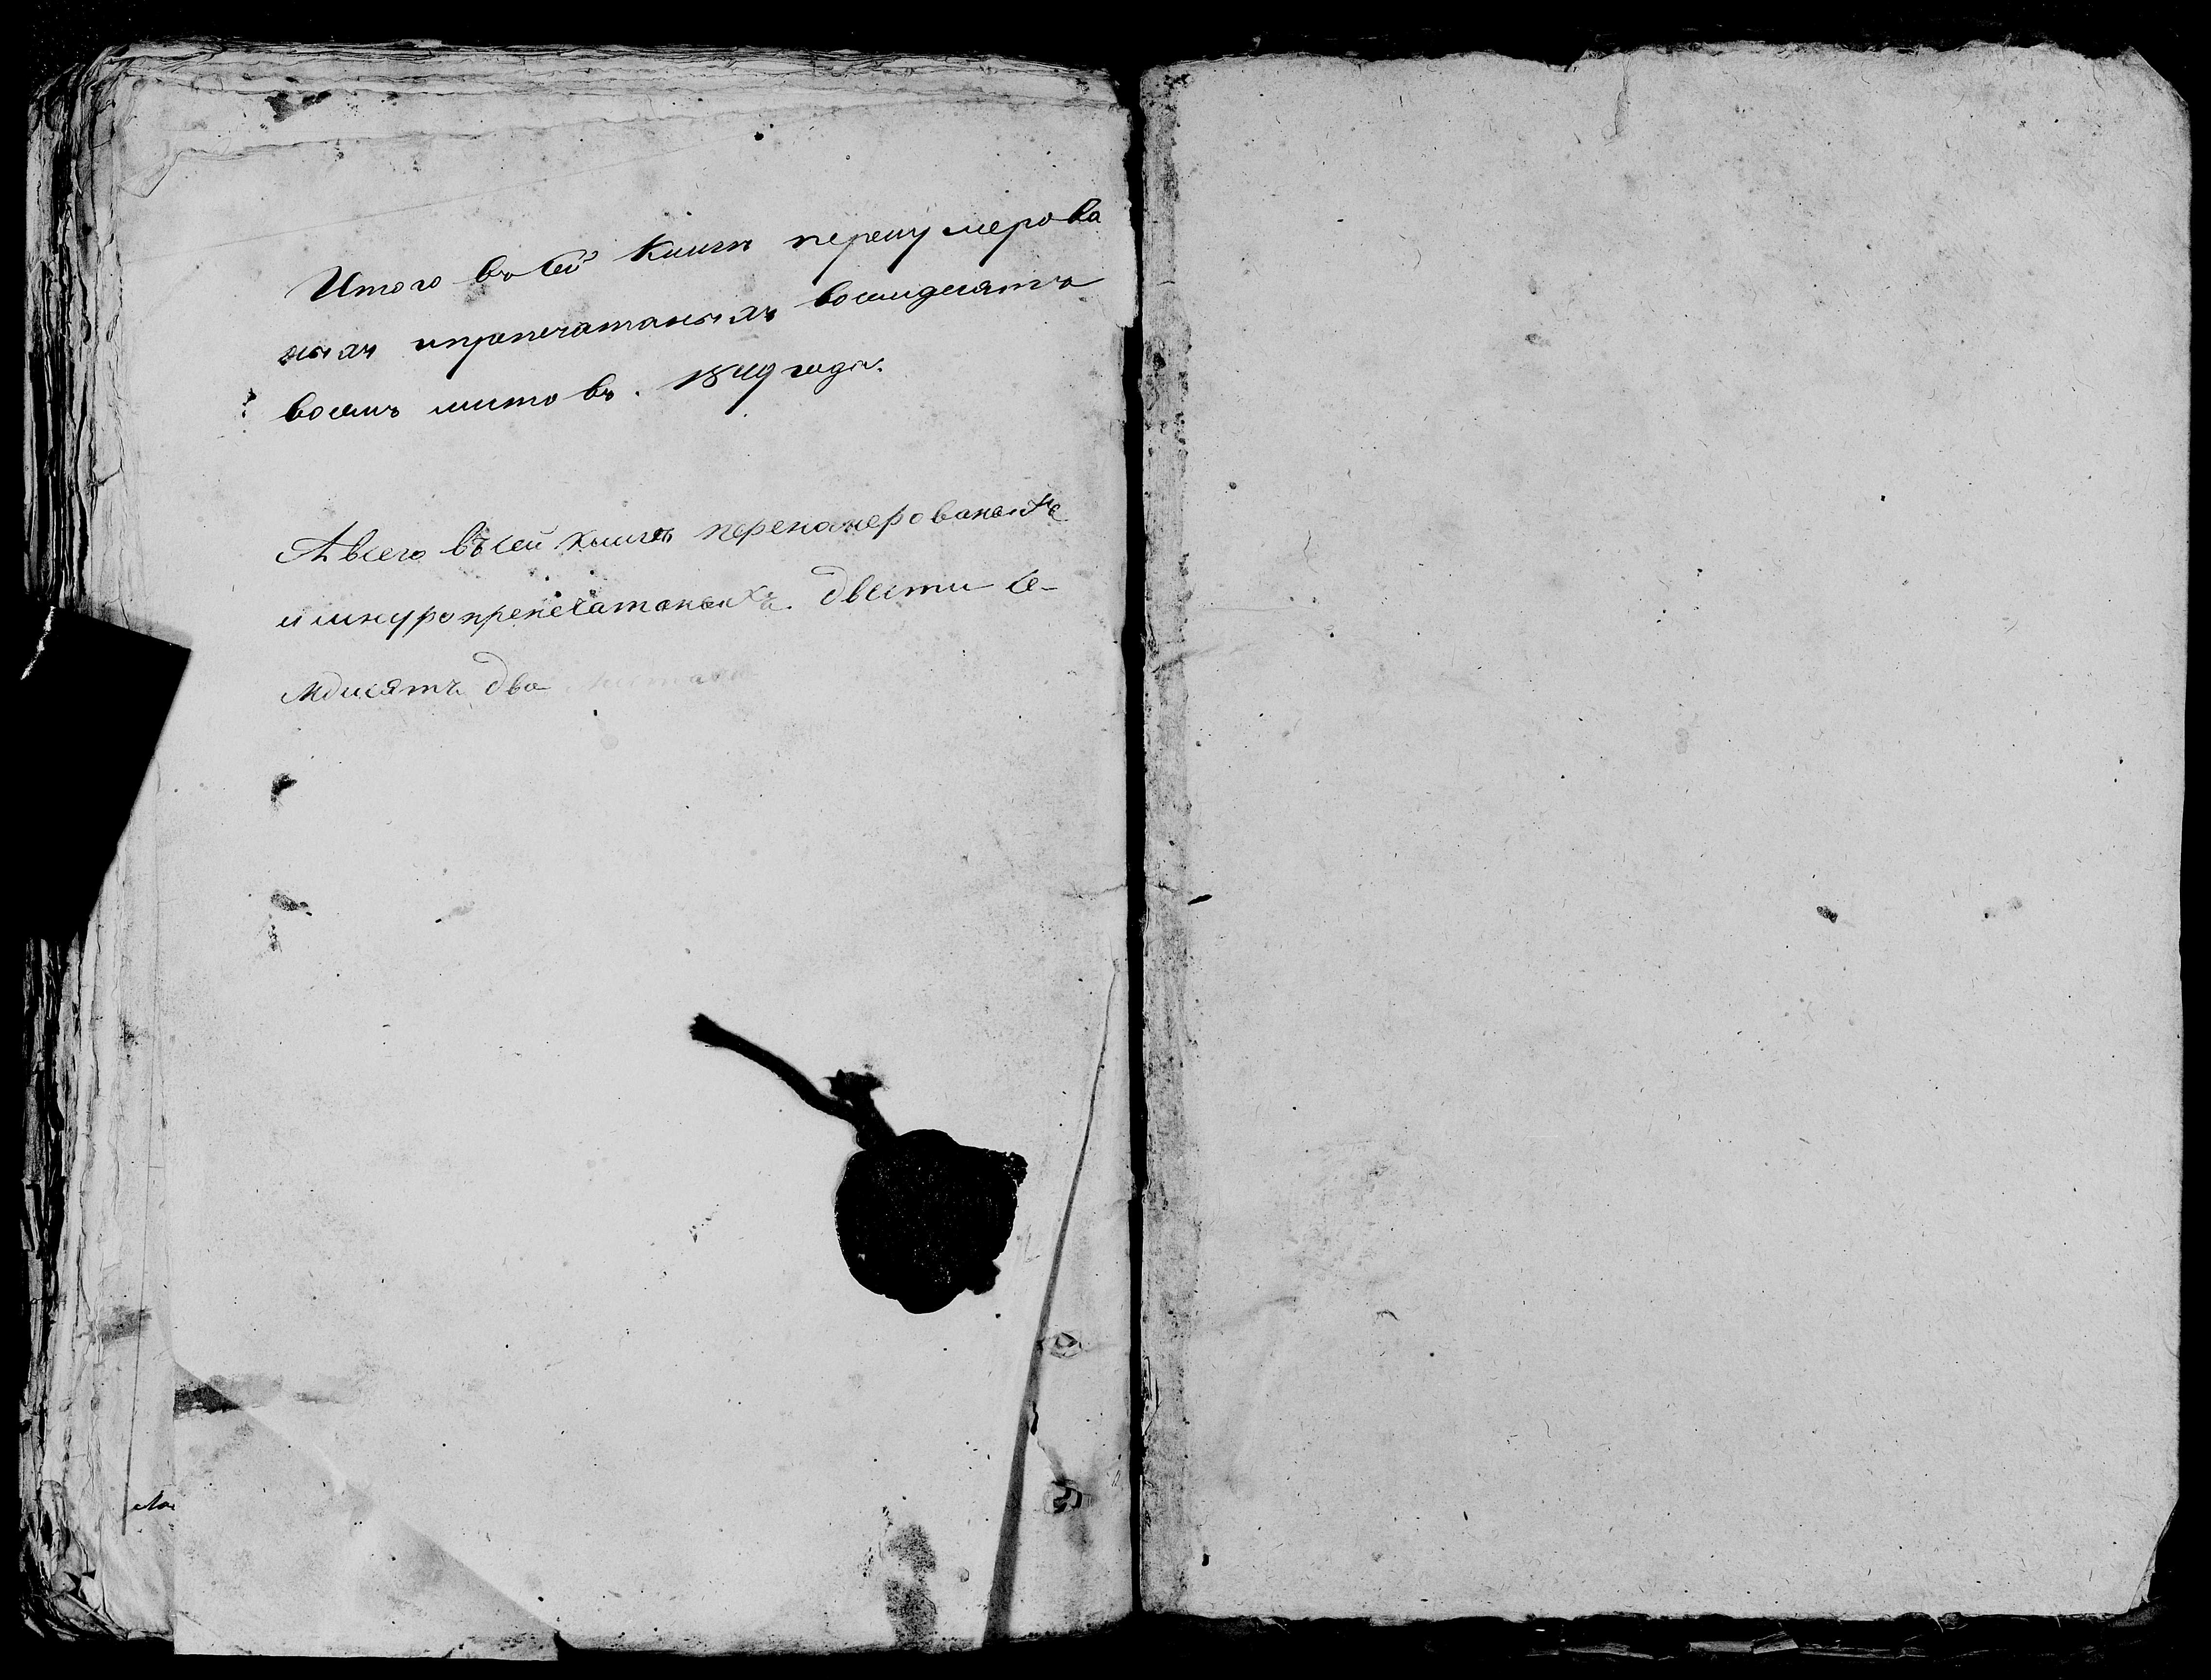 Итого въ сей Книги перенумерова
ныхъ ипропечатаныхъ восмидесятъ
восмь листовъ. 1849 года.
А всего въ сей книге перенамерованыхъ
и шнуропрепечатаныхъ двести се-
мдисятъ два листовъ